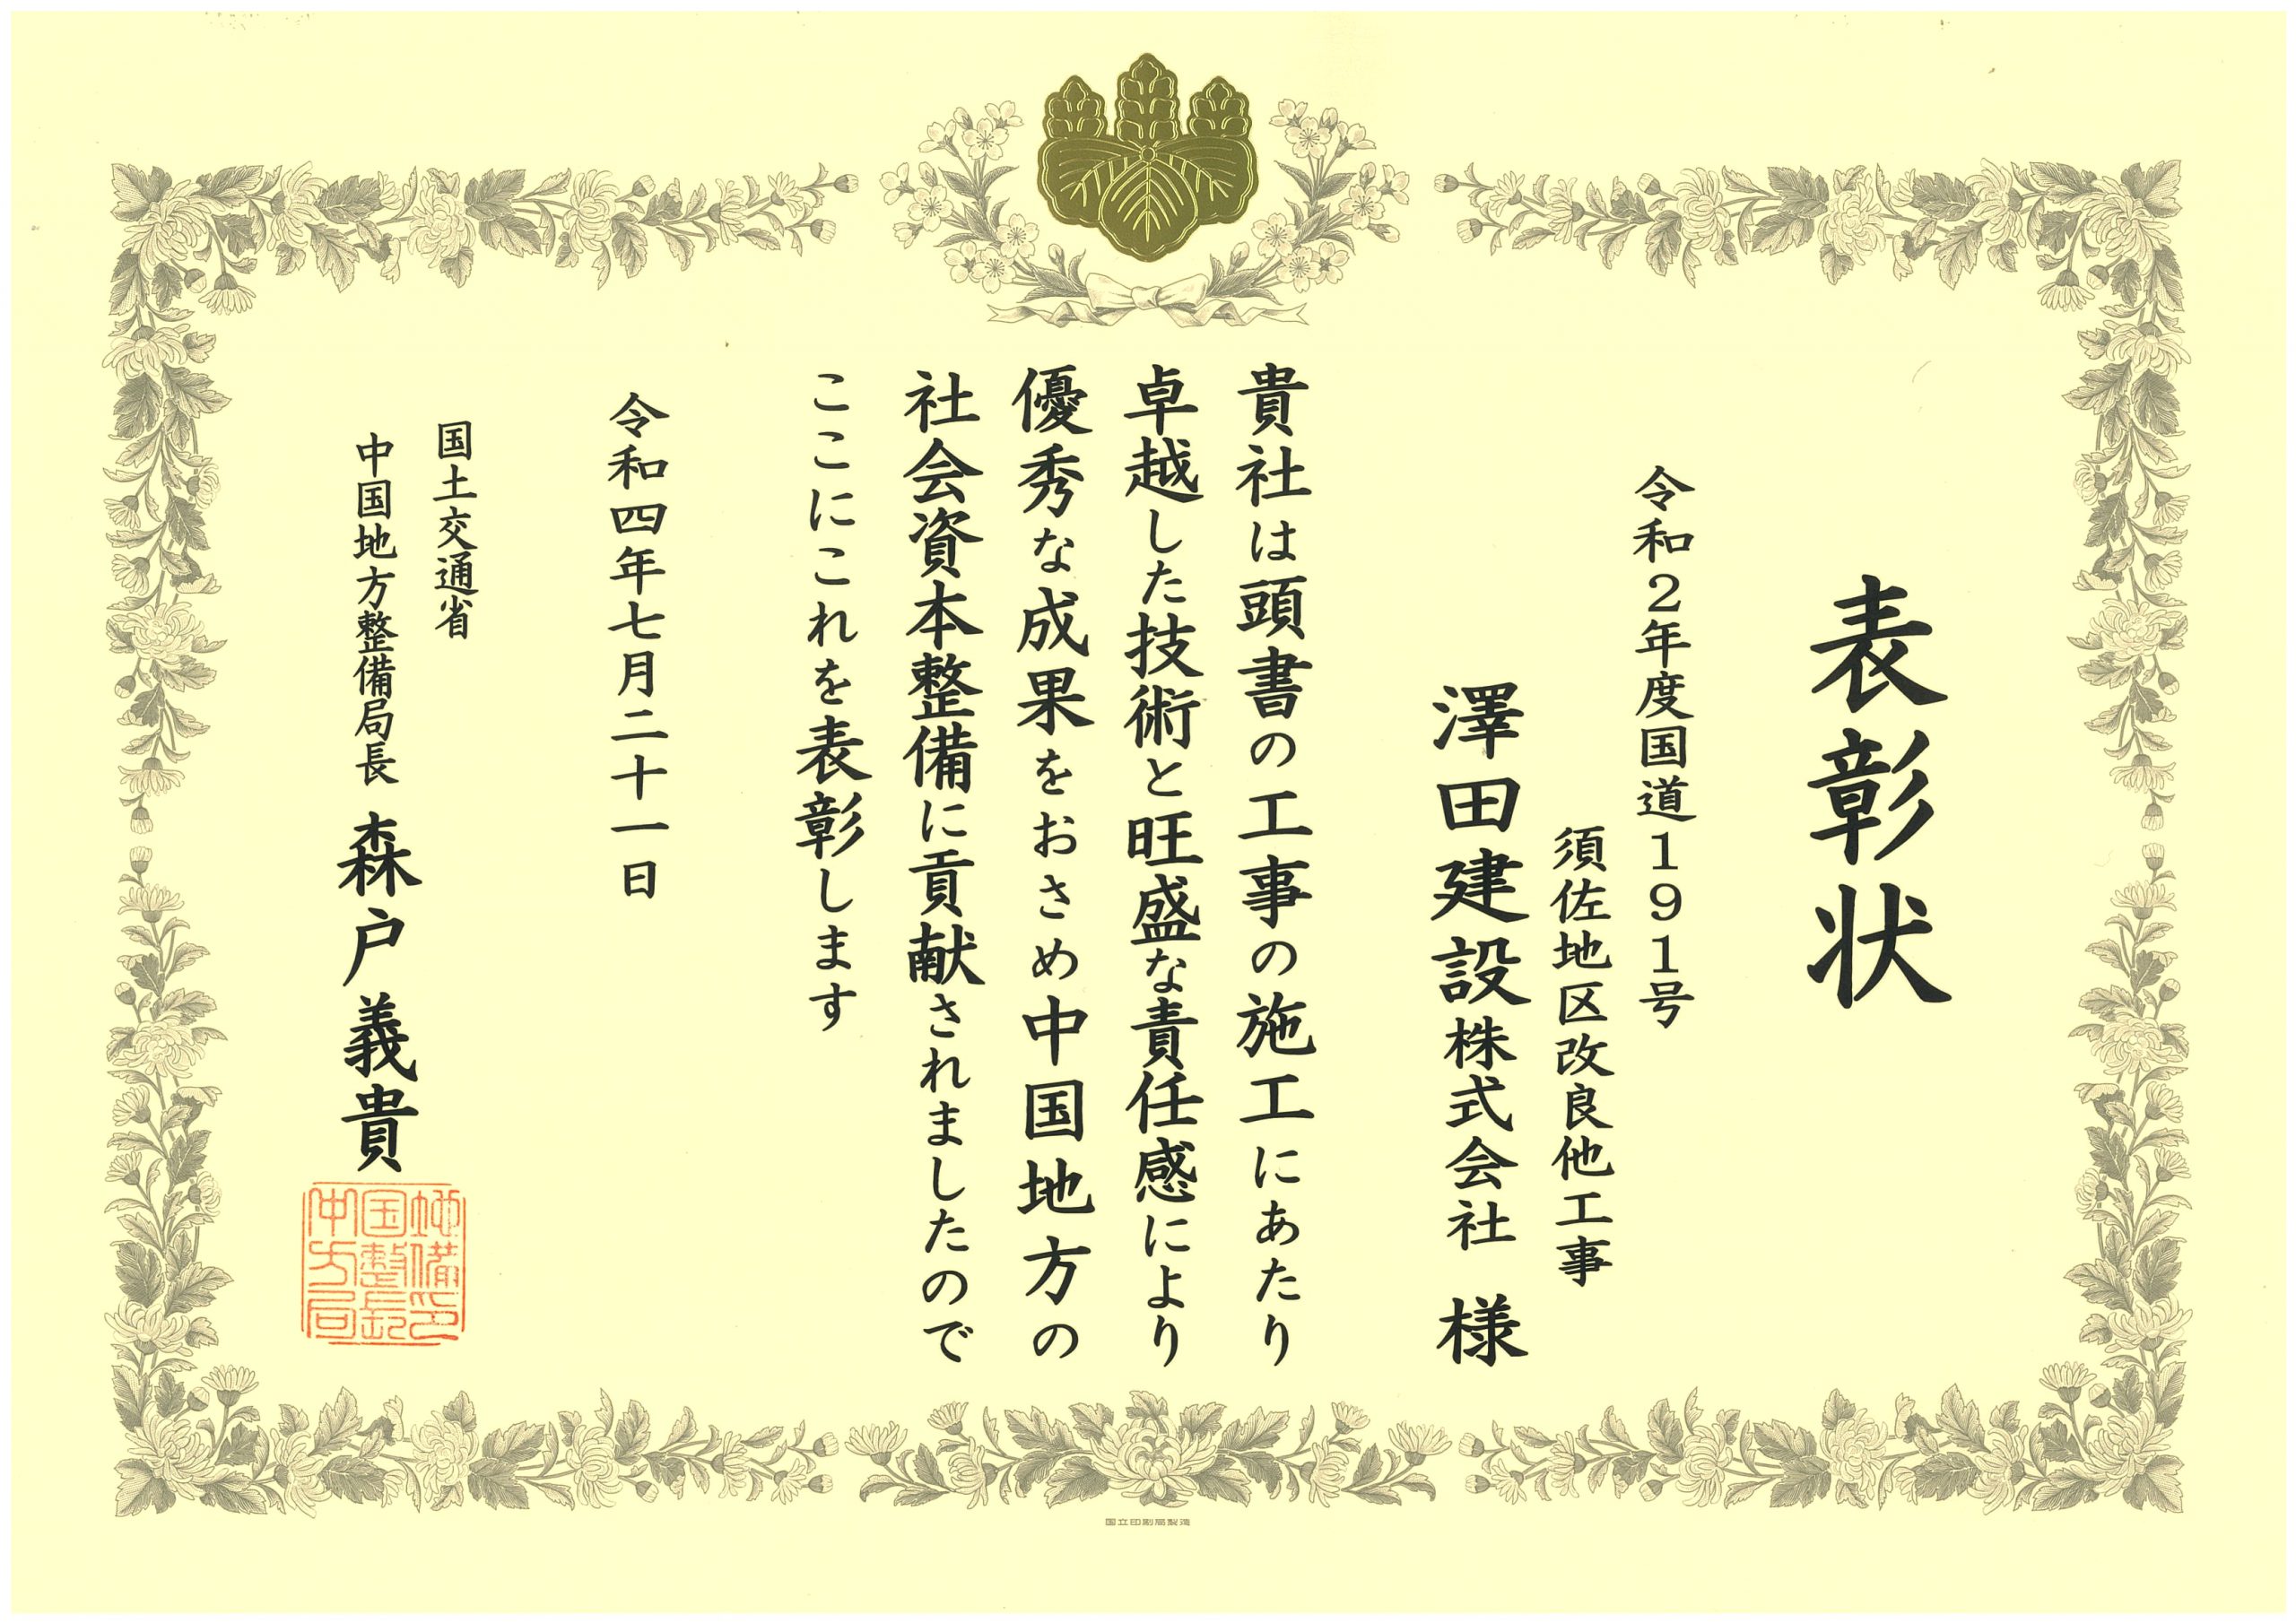 表彰状
令和2年度国道191号
須佐地区改良他工事
澤田建設株式会社 様
貴社は頭書の工事の施工にあたり
卓越した技術と旺盛な責任感により
優秀な成果をおさめ中国地方の
社会資本整備に貢献されましたので
ここにこれを表彰します
令和四年七月二十一日
国土交通省
中国地方整備局長 森戸義貴
国立印刷局製造